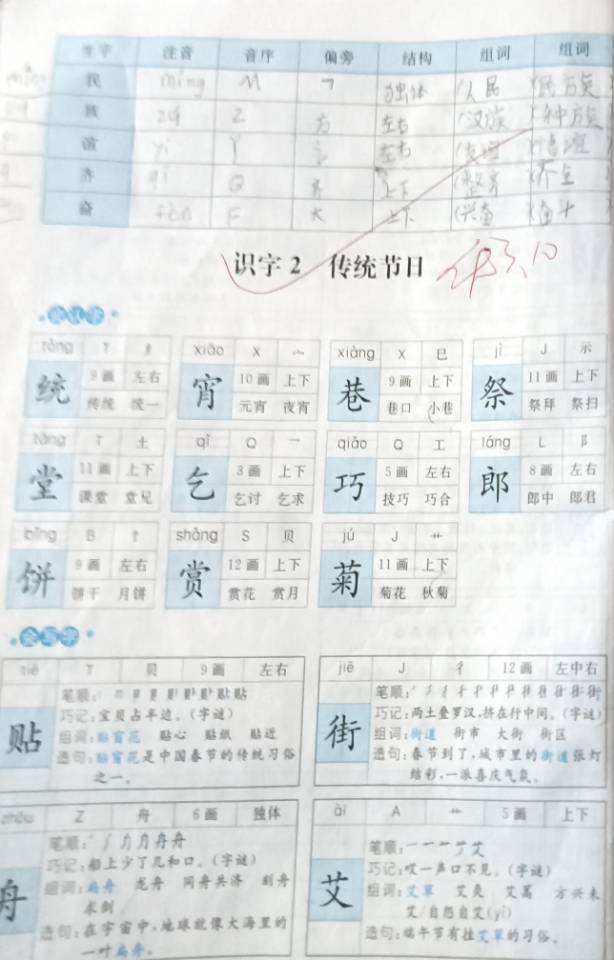 生字 注音 音序 偏旁 结构 组词 组词
民 mínɡ M 独体 人民
族 Z 方 左右 汉族 种族
谊 yì Y 讠 左右
齐 qí Q 齐 上下 整齐
奋 fèn F 大 上下 兴奋
识字2 传统节日
会认字
tǒng T 纟 xiāo X 宀 xiàng X 巳 jì J 示
统 9画 左右 宵 10画 上下 巷 9画 上下 祭 11画 上下
传统 统一 元宵 夜宵 巷口 小巷 祭拜 祭扫
táng T 土 qǐ Q 乛 qiǎo Q 工 láng L 阝
堂 11画 上下 乞 3画 上下 巧 5画 左右 郎 8画 左右
课堂 堂兄 乞讨 乞求 技巧 巧合 郎中 郎君
bǐng B 饣 shǎng S 贝 jú J 艹
饼 9画 左右 赏 12画 上下 菊 11画 上下
饼干 月饼 赏花 赏月 菊花 秋菊
会写字
tiē T 贝 9画 左右
贴
笔顺:
巧记:宝贝占半边。(字谜)
组词:贴窗花 贴心 贴纸 贴近
造句:贴窗花是中国春节的传统习俗
之一。
jiē J 彳 12画 左中右
街
笔顺:
巧记:两土叠罗汉,挤在行中间。(字谜)
组词:街道 街市 大街 街区
造句:春节到了,城市里的街道张灯
结彩,一派喜庆气氛。
zhōu Z 舟 6画 独体
舟
笔顺:
巧记:船上少了几和口。(字谜)
组词:扁舟 龙舟 同舟共济 刻舟
求剑
造句:在宇宙中,地球就像大海里的
一叶扁舟。
ài A 艹 5画 上下
艾
笔顺:
巧记:哎一声口不见。(字谜)
组词:艾草 艾灸 艾蒿 方兴未
艾/自怨自艾(yì)
造句:端午节有挂艾草的习俗。